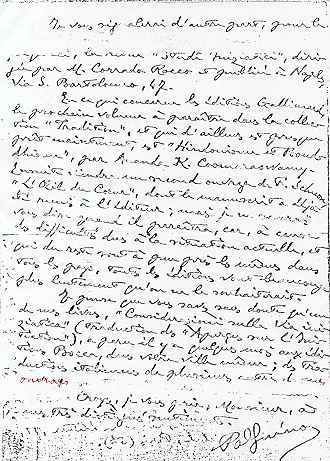 Je vous signalerai d'autre part, pour la
la revue "Studi Iniziatici", diri-
gée par M. Corrado Rocco et publiée à Naples,
Via S. Bartolomeo, 47.
En ce qui concerne les éditions Gallimard,
le prochain volume à paraître dans la collec-
tion "Tradition", et qui d'ailleurs est presque
prêt maintenant, est "Hindouisme et Boud-
dhisme", par Ananda K. Coomaraswamy.
Ensuite viendra un second ouvrage de F. Schuon,
"L'Œil du Cœur", dont le manuscrit a déjà
été remis à l'éditeur; mais je ne saurais
vous dire quand il paraîtra, car, à cause
des difficultés dues à la situation actuelle, et
qui du reste sont à peu près les mêmes dans
tous les pays, toutes les éditions vont beaucoup
plus lentement qu'on ne le souhaiterait.
Je pense que vous savez sans doute qu'un
de mes livres, "Considerazioni sulla Via ini-
ziatica" (traduction des "Aperçus sur l'Ini-
tiation"), a paru il y a quelques mois aux édi-
tions Bocca, dans votre ville même; des tra-
ductions italiennes de plusieurs autres de mes
ouvrages
Croyez, je vous prie, Monsieur, à
mes très distingués sentiments.
René Guénon